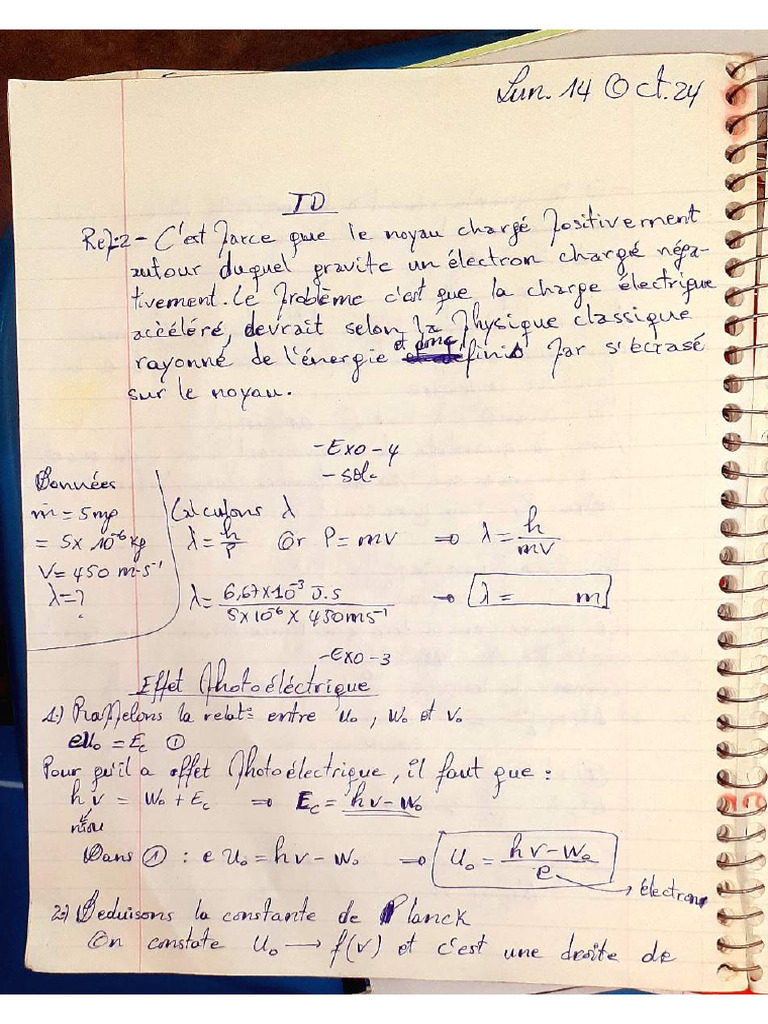 Lun. 14 Oct. 24
TD
Rep:2 - C'est parce que le noyau chargé positivement
autour duquel gravite un électron chargé néga-
tivement. Le problème c'est que la charge électrique
accéléré, devrait selon la physique classique
rayonné de l'énergie et donc finis par s'écrasé
sur le noyau.
- Exo - 4
- sol.
Données
m = 5mg
= 5 x 10⁻⁶ kg
V = 450 m·s⁻¹
λ = ?
Calculons λ
λ = h/P Or P = mv ⇒ λ = h/mv
λ = 6,67 x 10⁻³ J.s / 5 x 10⁻⁶ x 450 ms⁻¹ → λ = m
- Exo - 3
Effet photoélectrique
1.) Rappelons la relat° entre u₀, W₀ et v₀
eu₀ = Ec ①
Pour qu'il a effet photoélectrique, il faut que :
h v = W₀ + Ec ⇒ Ec = hv - W₀
niou
Dans ① : e U₀ = hv - W₀ ⇒ U₀ = hv - W₀ / e
électron
2.) Deduisons la constante de Planck
On constate U₀ → f(v) et c'est une droite de